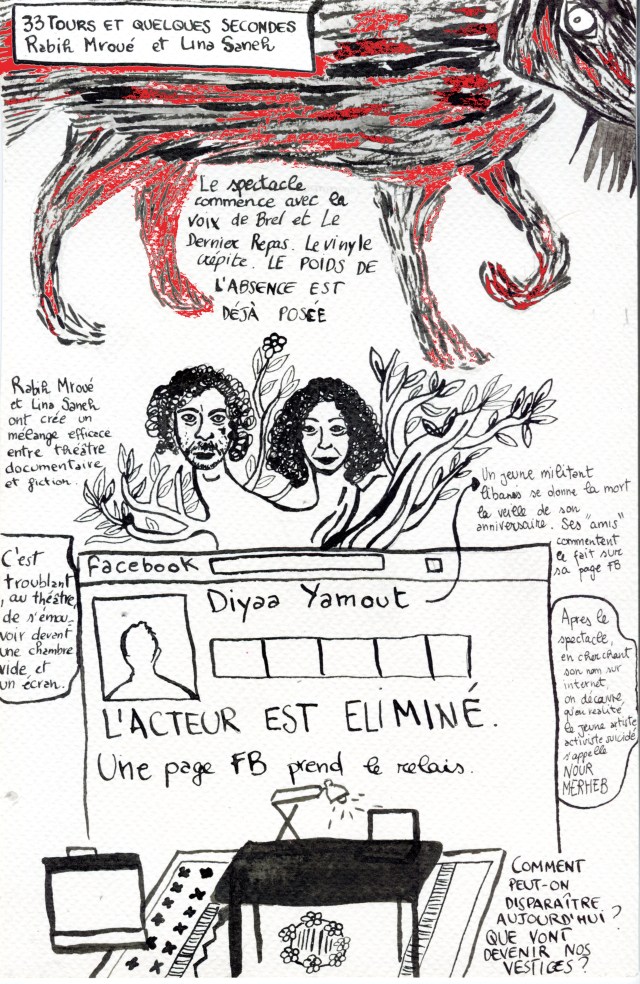 33 TOURS ET QUELQUES SECONDES
Rabih Mroué et Lina Saneh
Le spectacle
commence avec la
voix de Brel et Le
Dernier Repas. Le vinyle
crépite. LE POIDS DE
L'ABSENCE EST
DÉJÀ POSÉE
Rabih Mroué
et Lina Saneh
ont crée un
mélange efficace
entre théâtre
documentaire
et fiction.
Un jeune militant
libanais se donne la mort
la veille de son
anniversaire. Ses "amis"
commentent
le fait sur
sa page FB
C'est
troublant
, au théâtre,
de s'émou-
voir devant
une chambre
vide et
un écran.
Facebook
Diyaa Yamout
L'ACTEUR EST ELIMINÉ.
Une page FB prend le relais.
Apres le
spectacle,
en cherchant
son nom sur
internet,
on découvre
qu'en réalité
le jeune artiste
activiste suicidé
s'appelle
NOUR
MERHEB
COMMENT
PEUT-ON
DISPARAÎTRE
AUJOURD'HUI ?
QUE VONT
DEVENIR NOS
VESTICES ?